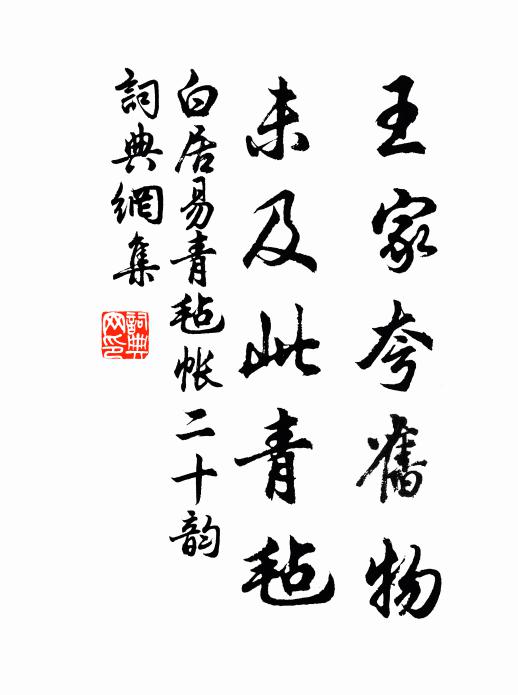 王家夸舊物
未及此青毡
白居易青毡帐二十韵
詞典網集
詞典网印